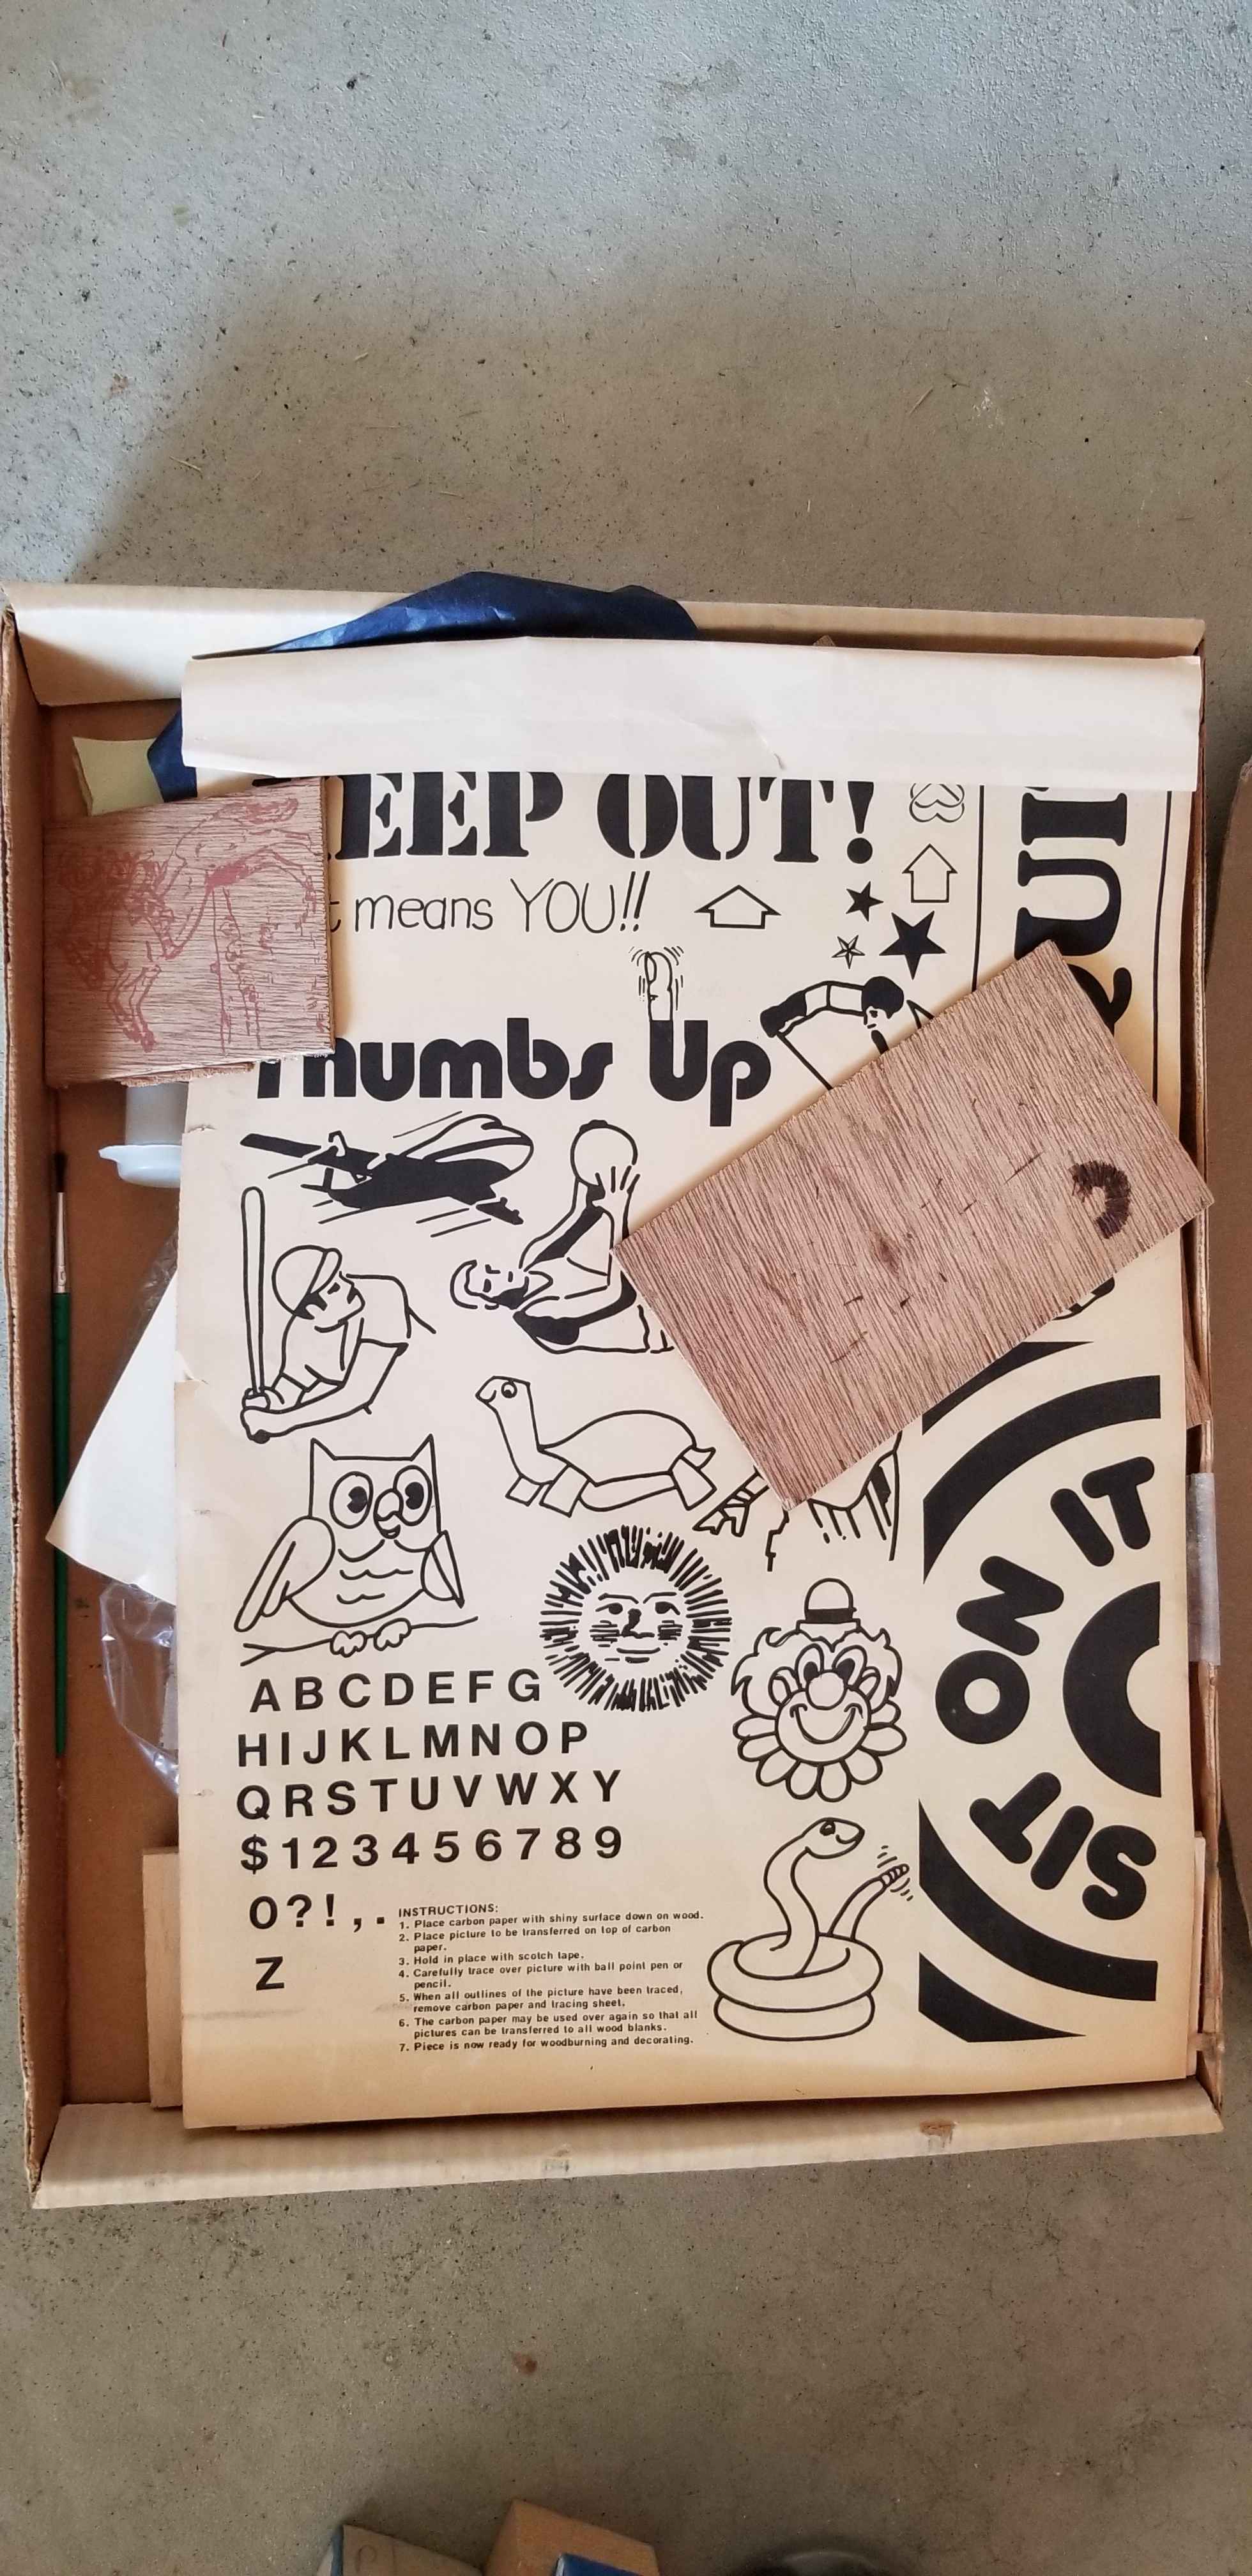 EEP OUT!
t means YOU!!
Thumbs Up
ABCDEFG
HIJKLMNOP
QRSTUVWXY
$123456789
0?!,.
Z
INSTRUCTIONS:
1. Place carbon paper with shiny surface down on wood.
2. Place picture to be transferred on top of carbon
paper.
3. Hold in place with scotch tape.
4. Carefully trace over picture with ball point pen or
pencil.
5. When all outlines of the picture have been traced,
remove carbon paper and tracing sheet.
6. The carbon paper may be used over again so that all
pictures can be transferred to all wood blanks.
7. Piece is now ready for woodburning and decorating.
SIT ON IT